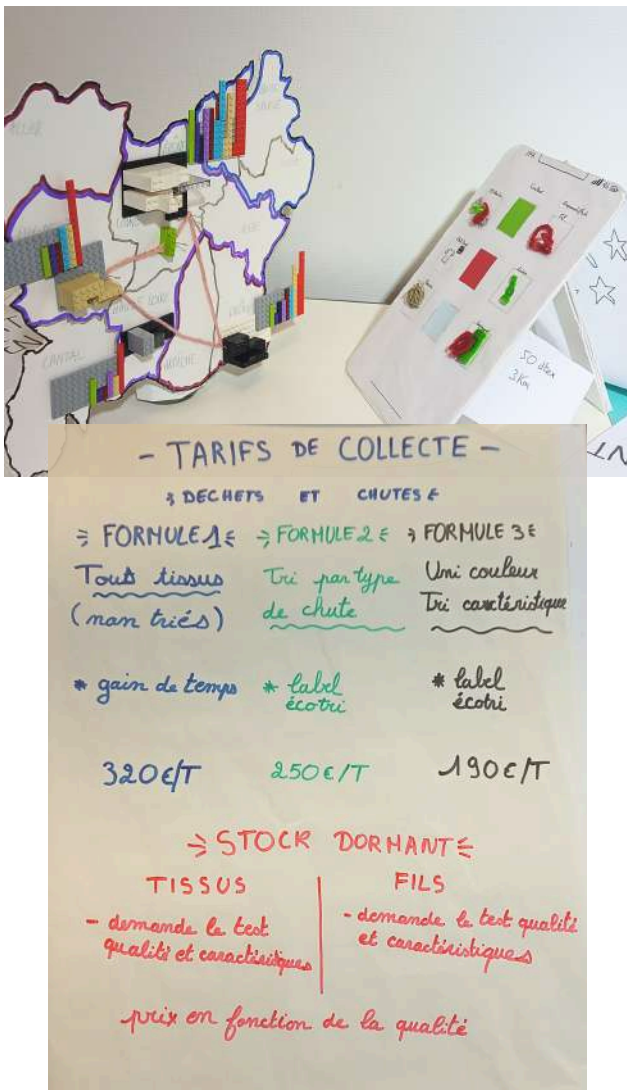 CANTAL
50 dtex
3Km
- TARIFS DE COLLECTE -
DECHETS ET CHUTES
FORMULE 1
Tous tissus
(non triés)
* gain de temps
320€/T
FORMULE 2
Tri par type
de chute
* label
écotri
250€/T
FORMULE 3
Uni couleur
Tri caractéristique
* label
écotri
190€/T
STOCK DORMANT
TISSUS
- demande le test
qualité et caractéristiques
FILS
- demande le test qualité
et caractéristiques
prix en fonction de la qualité